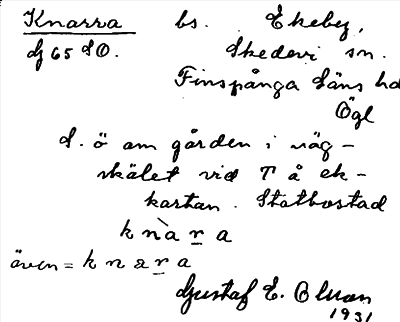 Knarra bs. Ekeby,
dj 65 SO. Skedevi sn.
Finspånga Läns hd
Ögl
S. ö om gården i väg-
skälet vid T å ek-
kartan. Statbostad
knàra
även = knara
Gustaf E. Olson
1931